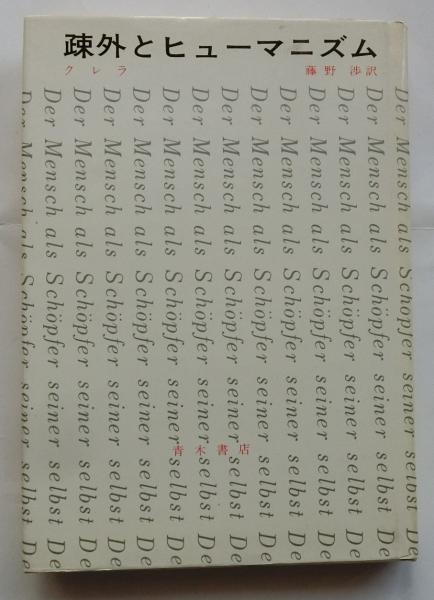 疎外とヒューマニズム
クレラ
藤野 渉訳
Der Mensch als Schöpfer seiner selbst De
Der Mensch als Schöpfer seiner selbst De
Der Mensch als Schöpfer seiner selbst De
Der Mensch als Schöpfer seiner selbst De
Der Mensch als Schöpfer seiner selbst De
Der Mensch als Schöpfer seiner selbst De
Der Mensch als Schöpfer seiner selbst De
Der Mensch als Schöpfer seiner selbst De
Der Mensch als Schöpfer seiner selbst De
Der Mensch als Schöpfer seiner selbst De
Der Mensch als Schöpfer seiner selbst De
Der Mensch als Schöpfer seiner selbst De
Der Mensch als Schöpfer seiner selbst De
Der Mensch als Schöpfer seiner selbst De
青木書店